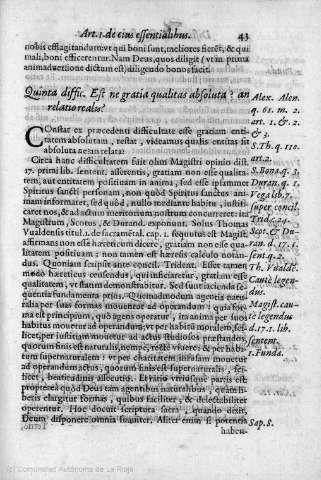 Art. 1. de eius essentialibus. 43
nobis efflagitandum vt qui boni sunt, meliores fierēt, & qui
mali, boni efficerentur. Nam Deus, quos diligit (vt in prima
animaduersione dictum est) diligendo bonos facit.
Quinta diffic. Est ne gratia qualitas absoluta? an
relatio realis?
Constat ex præcedenti difficultate esse gratiam enti-
tatem absolutam, restat, videamus qualis entitas sit
absoluta ne an relata?
Circa hanc difficultatem fuit olim Magistri opinio dist.
17. primi lib. sentent. asserentis, gratiam non esse qualita-
tem, aut entitatem positiuam in anima, sed esse ipsummet
Spiritus sancti personam, non quòd Spiritus sanctus ani-
mam informaret, sed quòd, nullo mediante habitu, iustifi-
caret nos, & ad actum meritorium nostrum concurreret: ita
Magistrum, Scotus, & Durand. exponunt. Solus Thomas
Vualdensis titul. 1. de sacramētal. cap. 1. sequutus est Magist.
affirmans non esse hæreticum dicere, gratiam non esse qua-
litatem positiuam: non tamen est hæresis calculo notan-
dus. Quoniam scripsit ante concil. Trident. Esset tamen
modò hæreticus censendus, qui inficiaretur, gratiam esse
qualitatem, vt statim demonstrabitur. Sed sunt iacienda se-
quentia fundamenta prius. Quemadmodum agentia natu-
ralia per suas formas mouentur ad operandum: quia for-
ma est principium, quo agens operatur, ita anima per suos
habitus mouetur ad operandum, vt per habitū moralem, sci-
licet, per iustitiam mouetur ad actus studiosos præstandos,
quorum finis est naturalis, nempe, rectè viuere: & per habi-
tum supernaturalem: vt per charitatem infusam mouetur
ad operandum actus, quorum finis est supernaturalis, sci-
licet, beatitudinis assecutio. Et ratio vtriusque partis est
propterea quòd Deus tam agentibus naturalibus, quàm li-
beris elargitur formas, quibus faciliter, & delectabiliter
operentur. Hoc docuit scriptura sacra, quando dixit,
Deum disponere omnia suauiter. Aliter enim si potentia
haben-
Alex. Alen.
q. 61. m. 2.
art. 1. & 2.
& 3.
S. Th. q. 110.
art. 2.
S. Bona. q. 3.
Duran. q. 1.
Vega lib. 7.
super concil.
Trid. c. 24.
Scot. & Du-
ran. d. 17. 1.
sent. q. 2.
Th. Vualdē.
Cautè legen-
dus.
Magist. cau-
tè legendus
d. 17. 1. lib.
sentent.
1. Funda.
Sap. 8.
(c) Comunidad Autónoma de La Rioja